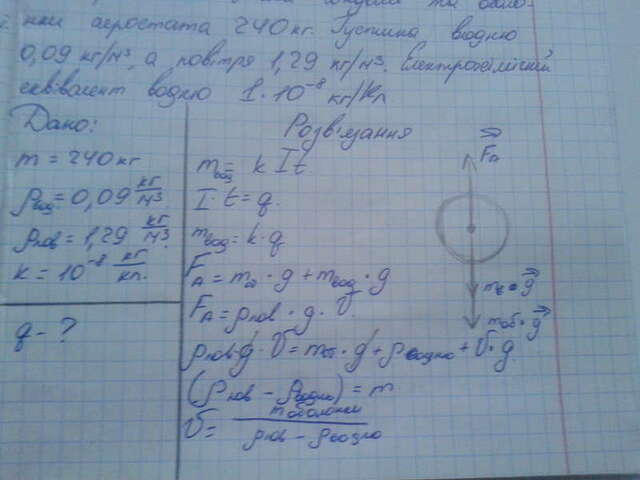 аеростата 240 кг. Густина водню
0,09 кг/м³, а повітря 1,29 кг/м³. Електрохімічний
еквівалент водню 1·10⁻⁸ кг/Кл.
Дано:
m = 240 кг
ρвод = 0,09 кг/м³
ρпов = 1,29 кг/м³
k = 10⁻⁸ кг/кл.
q - ?
Розв'язання
mвод = k I t.
I · t = q.
mвод = k · q
FA = mоб · g + mвод · g
FA = ρпов · g · V.
ρпов · g · V = mоб · g + ρводню + V · g.
(ρпов - ρводню) = m
V = mоболонки / ρпов - ρводню
FA
mв · g
mоб · g